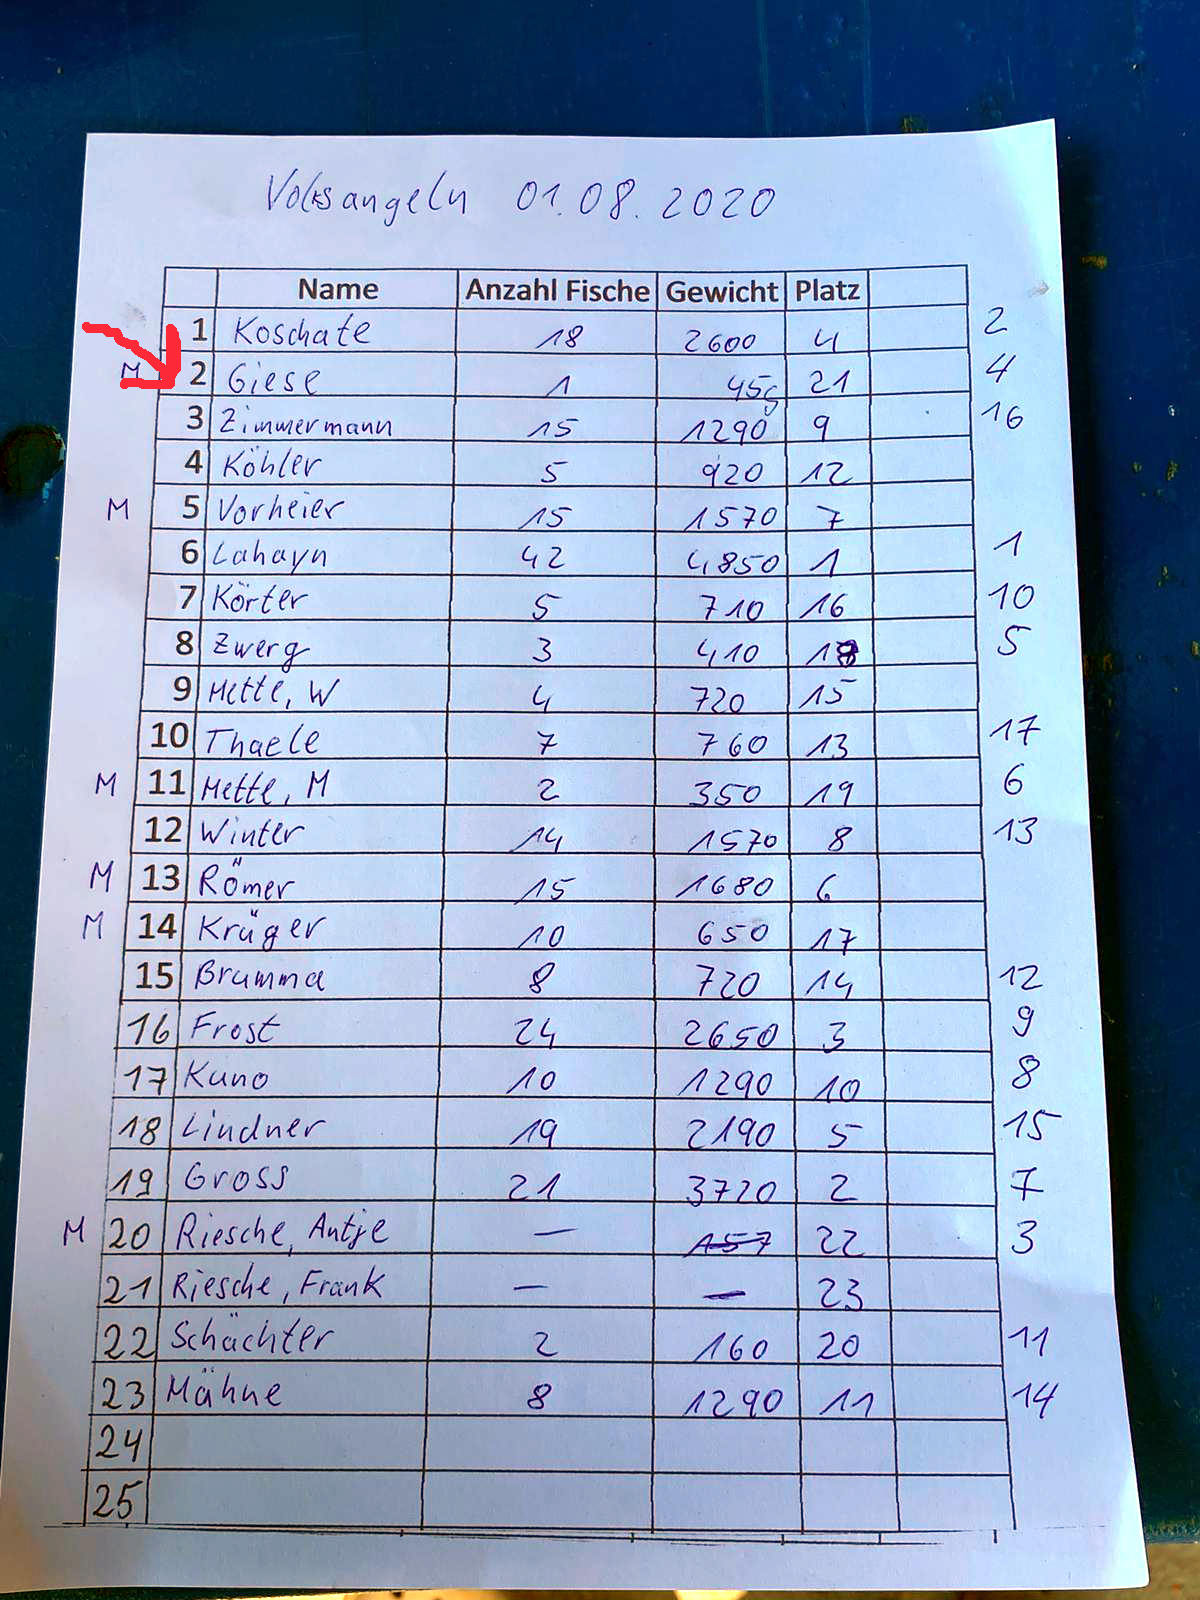 Volksangeln 01.08.2020
Name Anzahl Fische Gewicht Platz
1 Koschate 18 2600 4 2
M 2 Giese 1 45g 21 4
3 Zimmermann 15 1290 9 16
4 Köhler 5 920 12
M 5 Vorheier 15 1570 7
6 Lahayn 42 4850 1 1
7 Körter 5 710 16 10
8 Zwerg 3 410 18 5
9 Mette, W 4 720 15
10 Thaele 7 760 13 17
M 11 Mette, M 2 350 19 6
12 Winter 14 1570 8 13
M 13 Römer 15 1680 6
M 14 Krüger 10 650 17
15 Brumma 8 720 14 12
16 Frost 24 2650 3 9
17 Kuno 10 1290 10 8
18 Lindner 19 2190 5 15
19 Gross 21 3720 2 7
M 20 Riesche, Antje — 157 22 3
21 Riesche, Frank — — 23
22 Schächter 2 160 20 11
23 Mähne 8 1290 11 14
24
25